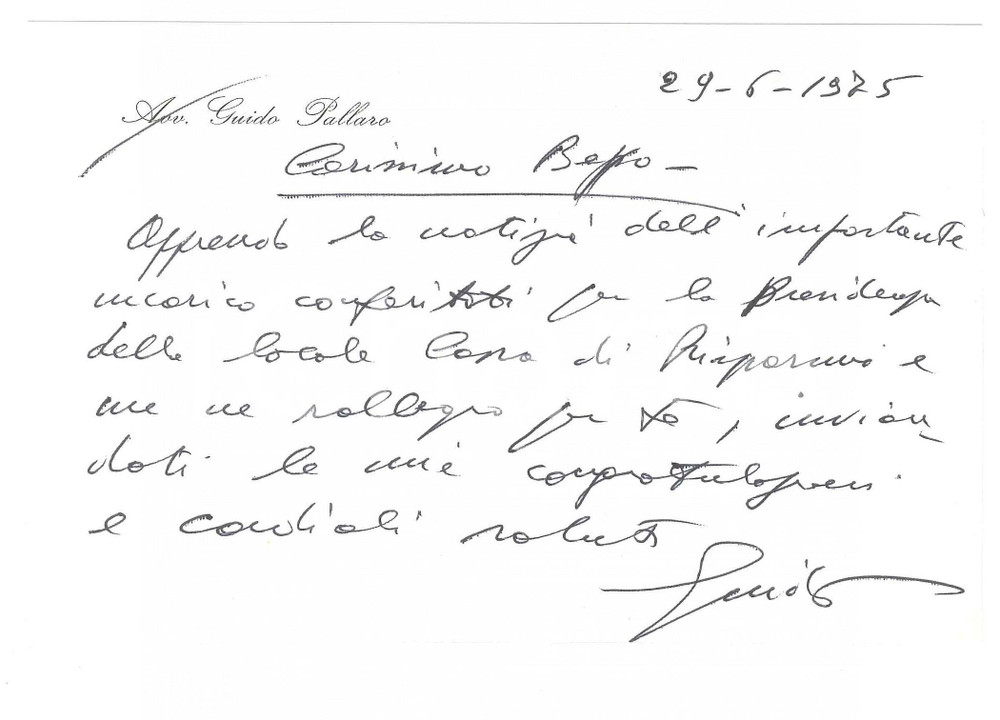 29-6-1975
Avv. Guido Pallaro
Carissimo Beppo -
Apprendo la notizia dell'importante
incarico conferitoti per la Presidenza
della locale Cassa di Risparmio e
me ne rallegro per te, invian
doti le mie congratulazioni
e cordiali saluti
Guido